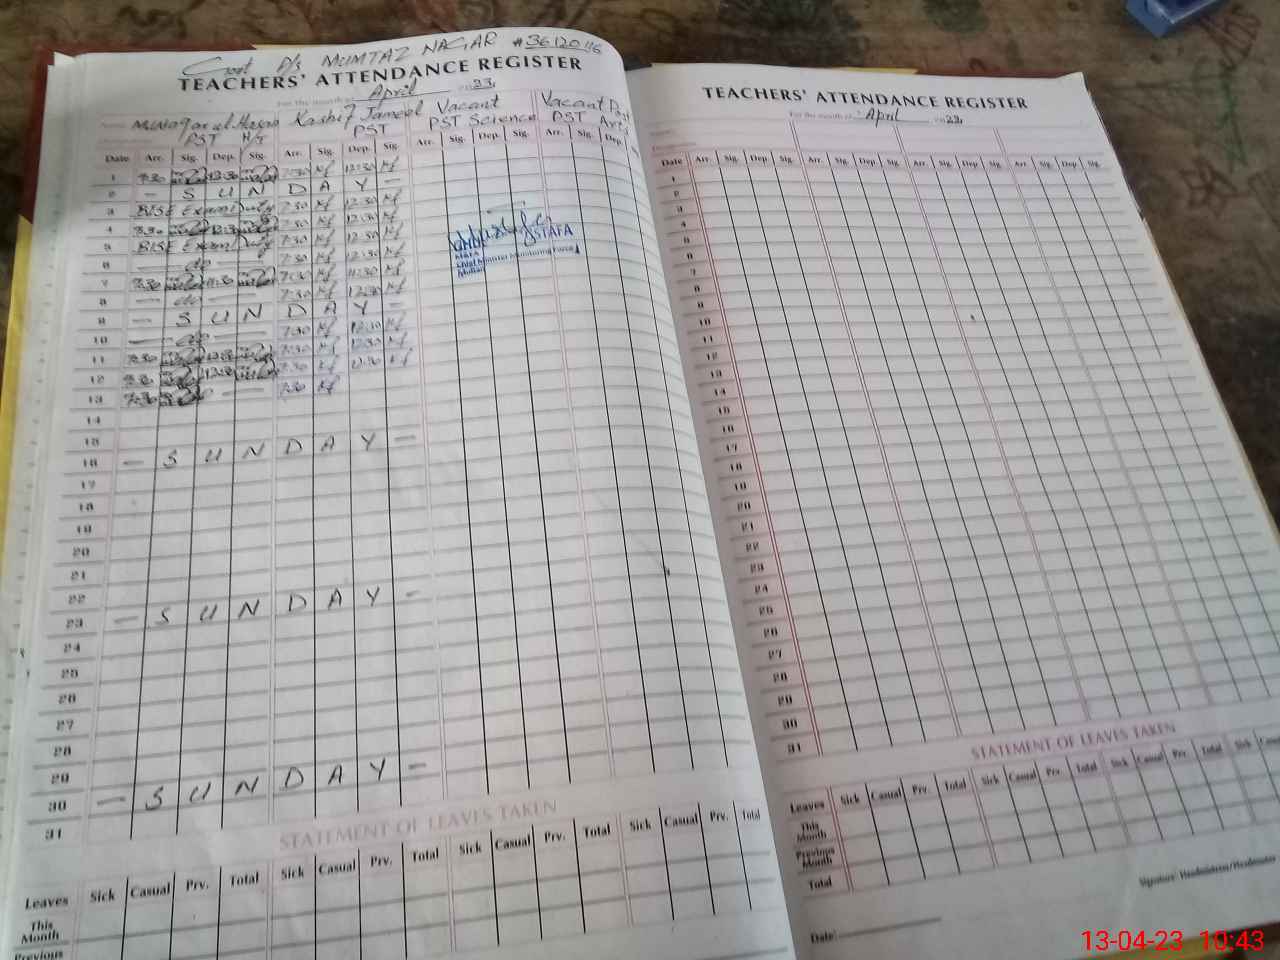 Govt P/S MUMTAZ NAGAR #36120116
TEACHERS' ATTENDANCE REGISTER
For the month of April 2023
Kashif Jameel Vacant Vacant Post
PST H/T PST PST Science PST Arts
Date Arr. Sig. Dep. Sig. Arr. Sig. Dep. Sig. Arr. Sig. Dep. Sig. Arr. Sig. Dep.
1 7:30 12:30 7:30 Kf 12:30 Kf
2 — S U N D A Y —
3 BISE Exam Duty 7:30 Kf 12:30 Kf
4 7:30 12:30 7:30 Kf 12:30 Kf
5 BISE Exam Duty 7:30 Kf 12:30 Kf
6 — do — 7:30 Kf 12:30 Kf
7 7:30 11:30 7:30 Kf 11:30 Kf
8 — do — 7:30 Kf 12:30 Kf
9 — S U N D A Y —
10 — do — 7:30 Kf 12:30 Kf
11 7:30 12:30 7:30 Kf 12:30 Kf
12 7:30 12:30 7:30 Kf 12:30 Kf
13 7:30 do — 7:30 Kf
14
15
16 — S U N D A Y —
17
18
19
20
21
22
23 — S U N D A Y —
24
25
26
27
28
29
30 — S U N D A Y —
31
Chief Minister Monitoring Force
Multan
STATEMENT OF LEAVES TAKEN
Leaves Sick Casual Prv. Total Sick Casual Prv. Total Sick Casual Prv. Total Sick Casual Prv. Total
This Month
Previous
TEACHERS' ATTENDANCE REGISTER
For the month of April 2023
Date Arr. Sig. Dep. Sig. Arr. Sig. Dep. Sig. Arr. Sig. Dep. Sig. Arr. Sig. Dep. Sig.
1
2
3
4
5
6
7
8
9
10
11
12
13
14
15
16
17
18
19
20
21
22
23
24
25
26
27
28
29
30
31
STATEMENT OF LEAVES TAKEN
Leaves Sick Casual Prv. Total Sick Casual Prv. Total Sick
This Month
Previous Month
Total
Signature: Headmistress/Headmaster
Date:
13-04-23 10:43